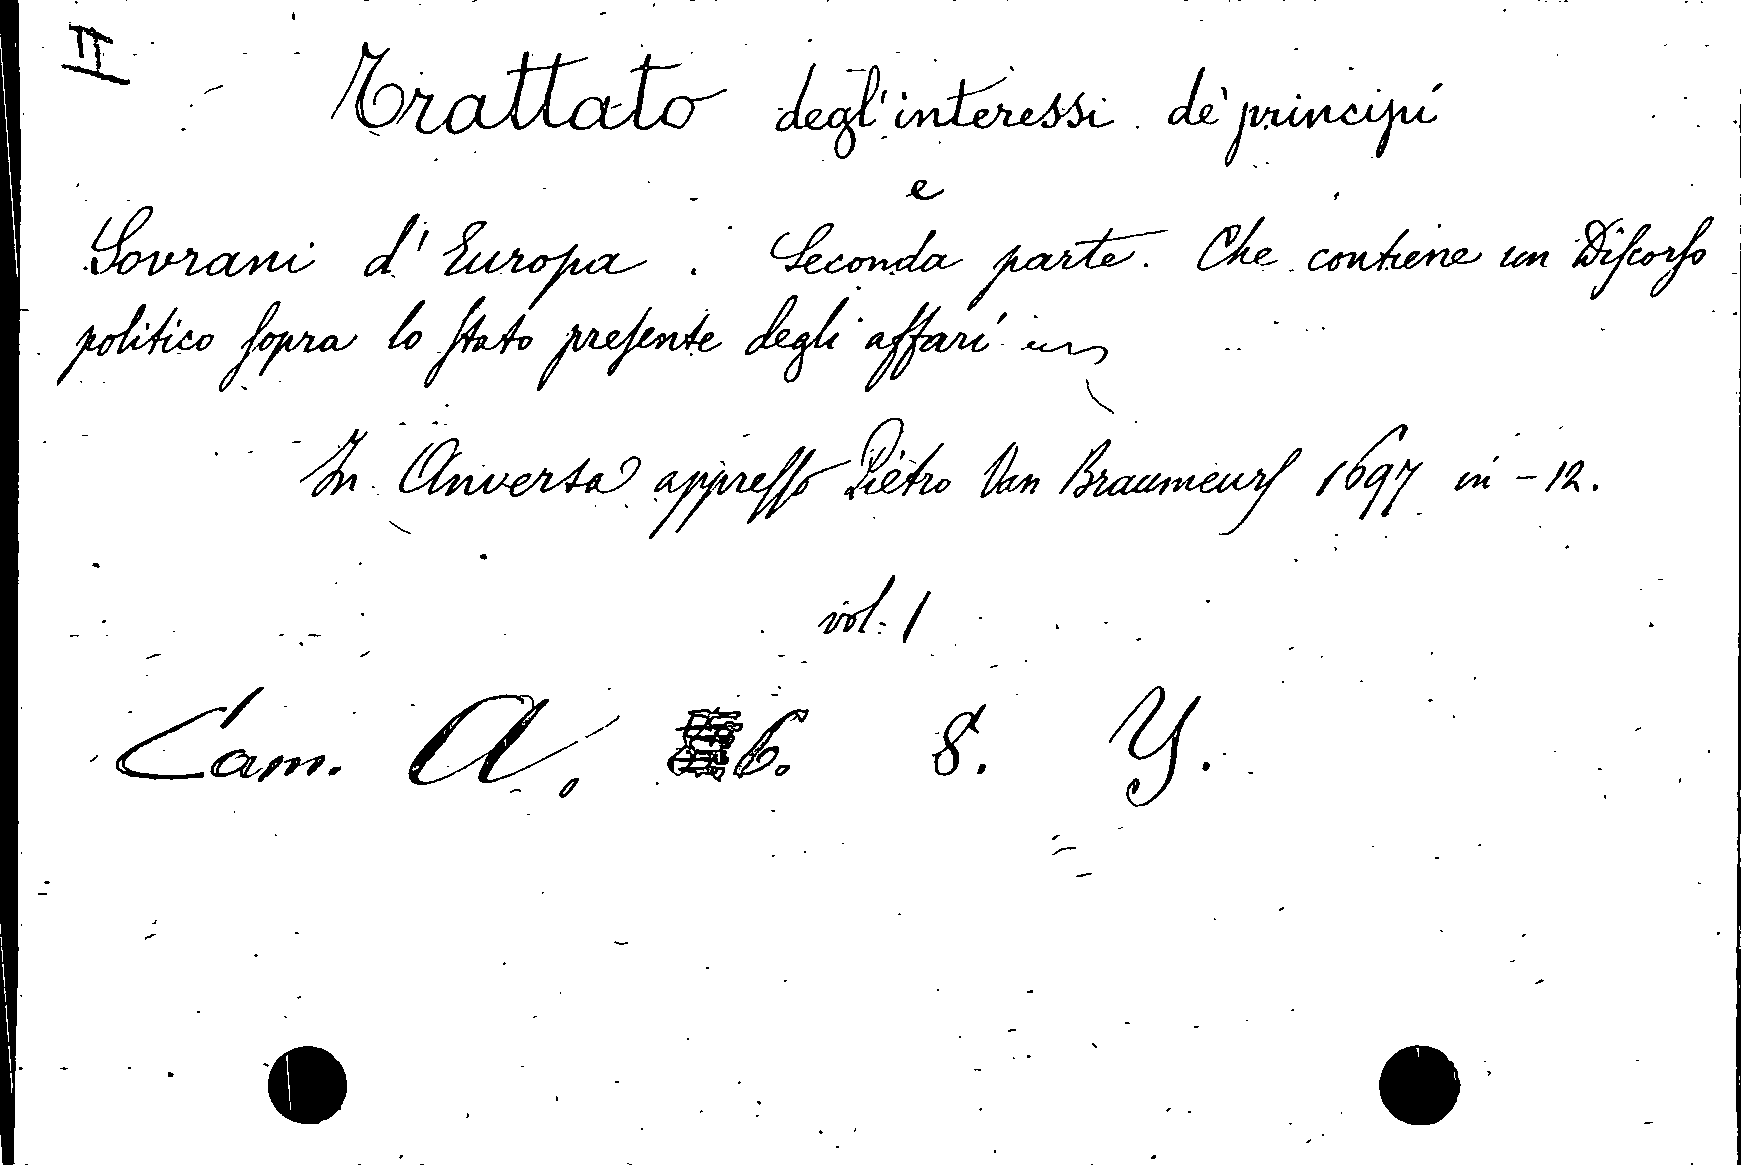 II
Trattato degl'interessi de' principi
e
Sovrani d'Europa. Seconda parte. Che contiene un Diſcorſo
politico ſopra lo ſtato preſente degli affari
In Anversa appreſſo Pietro Van Braumeurſ 1697 in-12.
vol. 1
Cam. A. 6. 8. Y.